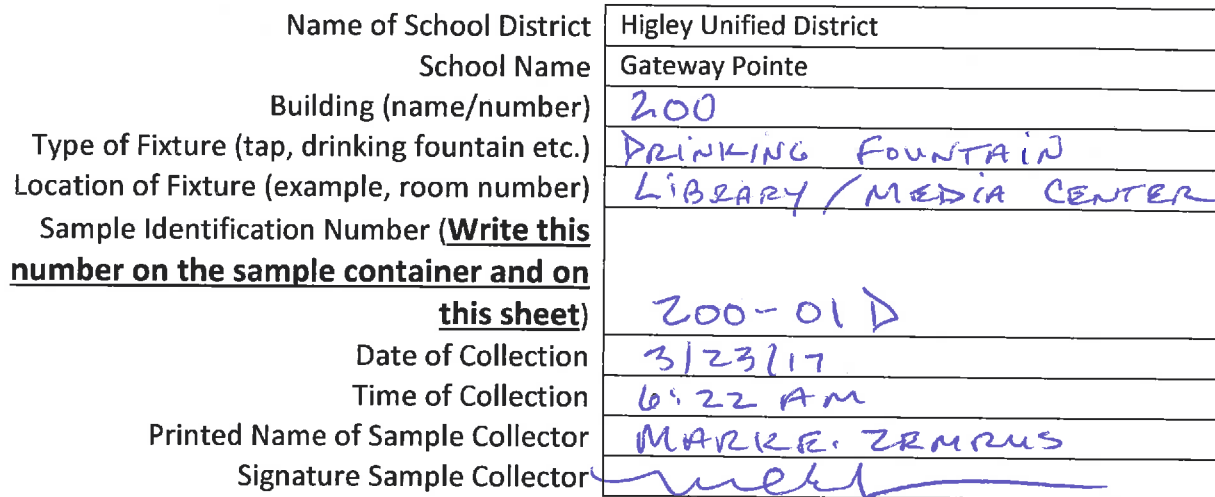 Name of School District Higley Unified District
School Name Gateway Pointe
Building (name/number) 200
Type of Fixture (tap, drinking fountain etc.) DRINKING FOUNTAIN
Location of Fixture (example, room number) LIBRARY / MEDIA CENTER
Sample Identification Number (Write this
number on the sample container and on
this sheet) 200-01D
Date of Collection 3/23/17
Time of Collection 6:22 AM
Printed Name of Sample Collector MARK E.
Signature Sample Collector